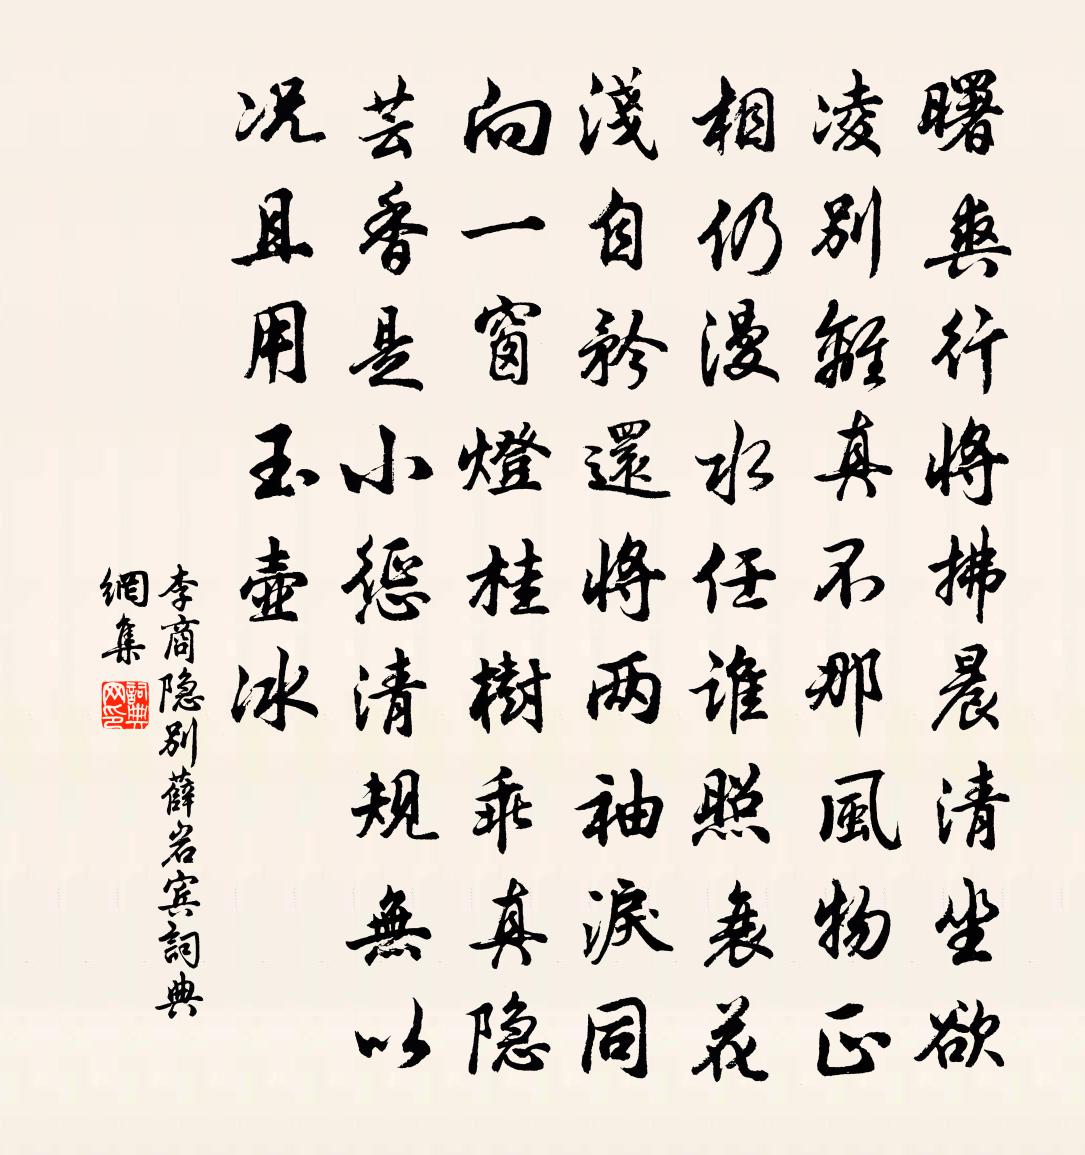 曙爽行將拂晨清坐欲
凌別離真不那風物正
相仍漫水任誰照衰花
淺自矜還將两袖淚同
向一窗燈桂樹乖真隐
芸香是小懲清規無以
况且用玉壺冰
李商隐別薛岩宾詞典
網集
詞典网印